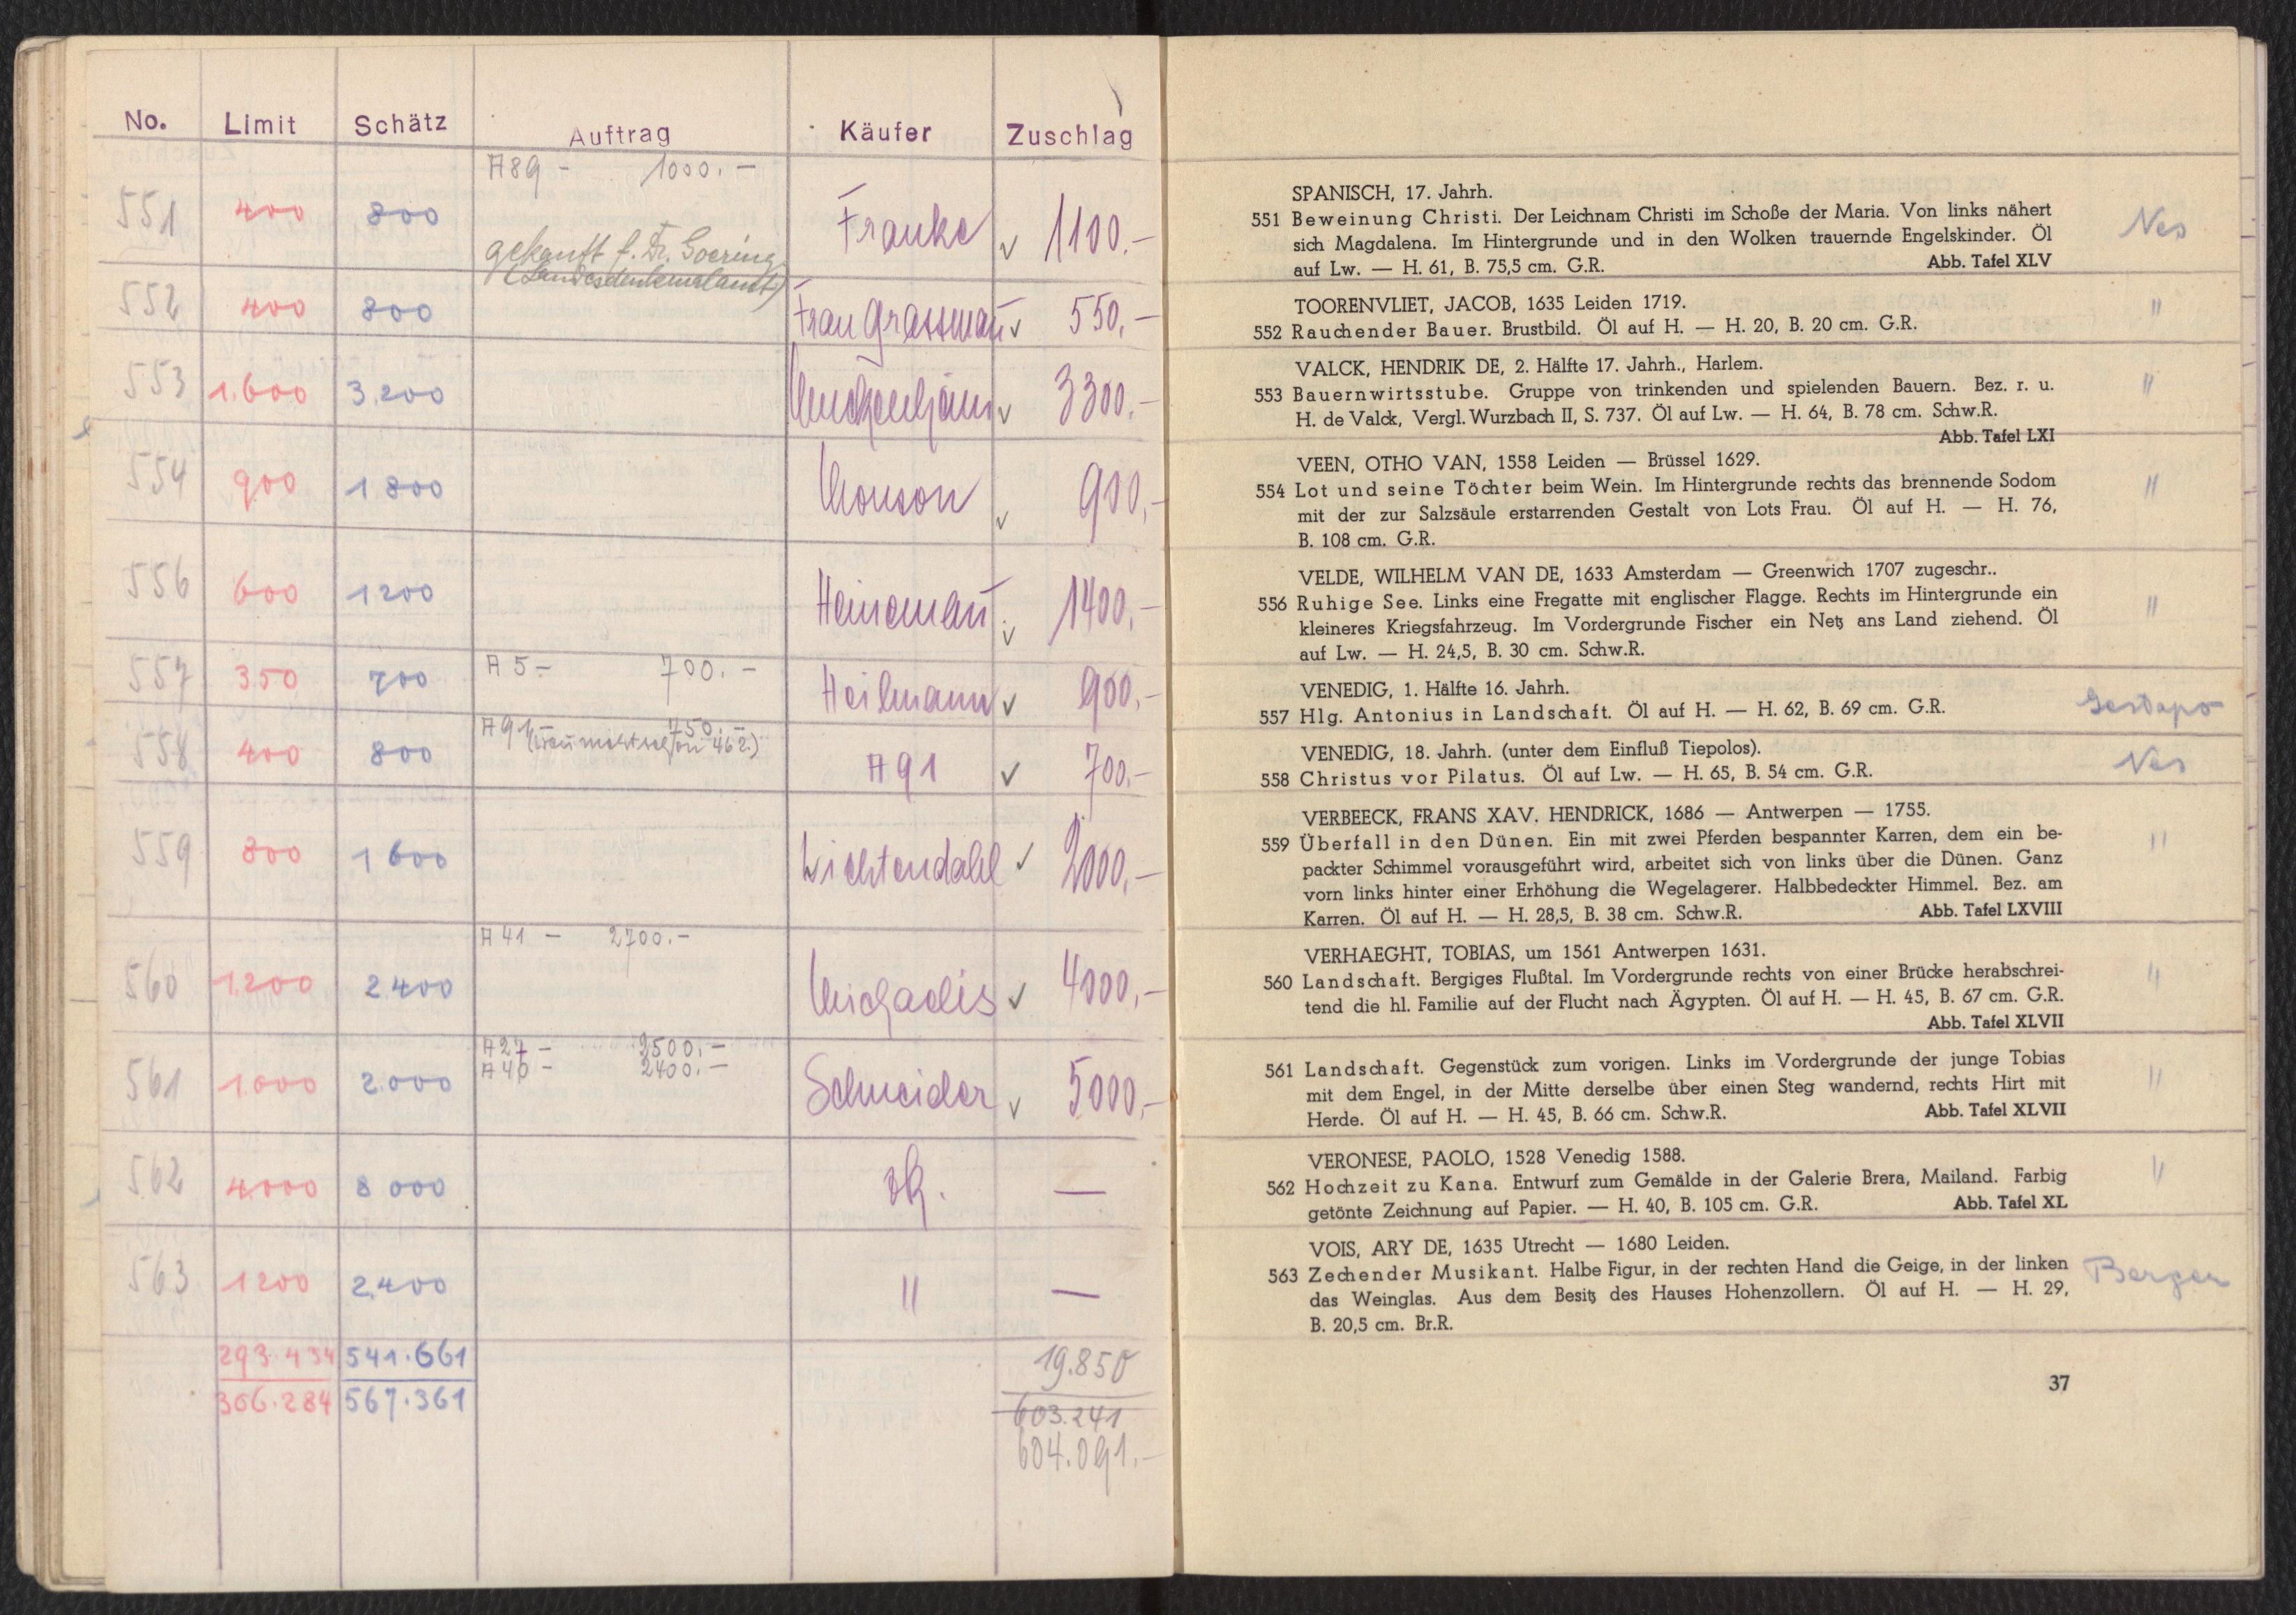 No. Limit Schätz Auftrag Käufer Zuschlag
A89 - 1000.-
551 400 800 Franke ✓ 1100.-
gekauft f. Dr. Goering
(Landesdenkmalamt)
552 400 800 Frau Grassmann ✓ 550.-
553 1.600 3.200 ✓ 3300.-
554 900 1800 ✓ 900,-
556 600 1200 Heinemann ✓ 1400,-
A 5- 700.-
557 350 700 Heilmann ✓ 900,-
A 91 750.-
558 400 800 A 91 ✓ 700.-
559 800 1600 Lichtendahl ✓ 2000,-
A 41 - 2700.-
560 1.200 2.400 ✓ 4000,-
A27 - 2500.-
A40 - 2400.-
561 1.000 2.000 Schneider ✓ 5000,-
562 4000 8000 —
563 1200 2.400 " —
293.434 541.661 19.850
306.284 567.361 603.241
604.091.-
SPANISCH, 17. Jahrh.
551 Beweinung Christi. Der Leichnam Christi im Schoße der Maria. Von links nähert Nes
sich Magdalena. Im Hintergrunde und in den Wolken trauernde Engelskinder. Öl
auf Lw. — H. 61, B. 75,5 cm. G.R. Abb. Tafel XLV
TOORENVLIET, JACOB, 1635 Leiden 1719. "
552 Rauchender Bauer. Brustbild. Öl auf H. — H. 20, B. 20 cm. G.R.
VALCK, HENDRIK DE, 2. Hälfte 17. Jahrh., Harlem.
553 Bauernwirtsstube. Gruppe von trinkenden und spielenden Bauern. Bez. r. u. "
H. de Valck, Vergl. Wurzbach II, S. 737. Öl auf Lw. — H. 64, B. 78 cm. Schw.R.
Abb. Tafel LXI
VEEN, OTHO VAN, 1558 Leiden — Brüssel 1629.
554 Lot und seine Töchter beim Wein. Im Hintergrunde rechts das brennende Sodom "
mit der zur Salzsäule erstarrenden Gestalt von Lots Frau. Öl auf H. — H. 76,
B. 108 cm. G.R.
VELDE, WILHELM VAN DE, 1633 Amsterdam — Greenwich 1707 zugeschr..
556 Ruhige See. Links eine Fregatte mit englischer Flagge. Rechts im Hintergrunde ein "
kleineres Kriegsfahrzeug. Im Vordergrunde Fischer ein Netz ans Land ziehend. Öl
auf Lw. — H. 24,5, B. 30 cm. Schw.R.
VENEDIG, 1. Hälfte 16. Jahrh.
557 Hlg. Antonius in Landschaft. Öl auf H. — H. 62, B. 69 cm. G.R. Gestapo
VENEDIG, 18. Jahrh. (unter dem Einfluß Tiepolos).
558 Christus vor Pilatus. Öl auf Lw. — H. 65, B. 54 cm. G.R. Nes
VERBEECK, FRANS XAV. HENDRICK, 1686 — Antwerpen — 1755.
559 Überfall in den Dünen. Ein mit zwei Pferden bespannter Karren, dem ein be- "
packter Schimmel vorausgeführt wird, arbeitet sich von links über die Dünen. Ganz
vorn links hinter einer Erhöhung die Wegelagerer. Halbbedeckter Himmel. Bez. am
Karren. Öl auf H. — H. 28,5, B. 38 cm. Schw.R. Abb. Tafel LXVIII
VERHAEGHT, TOBIAS, um 1561 Antwerpen 1631.
560 Landschaft. Bergiges Flußtal. Im Vordergrunde rechts von einer Brücke herabschrei- "
tend die hl. Familie auf der Flucht nach Ägypten. Öl auf H. — H. 45, B. 67 cm. G.R.
Abb. Tafel XLVII
561 Landschaft. Gegenstück zum vorigen. Links im Vordergrunde der junge Tobias "
mit dem Engel, in der Mitte derselbe über einen Steg wandernd, rechts Hirt mit
Herde. Öl auf H. — H. 45, B. 66 cm. Schw.R. Abb. Tafel XLVII
VERONESE, PAOLO, 1528 Venedig 1588. "
562 Hochzeit zu Kana. Entwurf zum Gemälde in der Galerie Brera, Mailand. Farbig
getönte Zeichnung auf Papier. — H. 40, B. 105 cm. G.R. Abb. Tafel XL
VOIS, ARY DE, 1635 Utrecht — 1680 Leiden.
563 Zechender Musikant. Halbe Figur, in der rechten Hand die Geige, in der linken Berger
das Weinglas. Aus dem Besitz des Hauses Hohenzollern. Öl auf H. — H. 29,
B. 20,5 cm. Br.R.
37